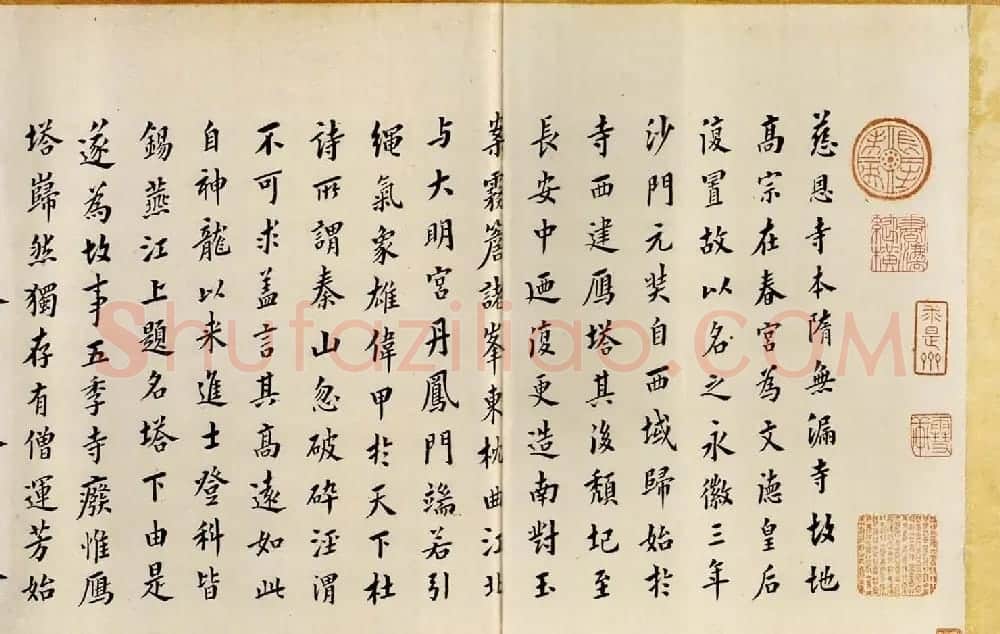 慈恩寺本隋無漏寺故地
高宗在春宮為文德皇后
復置故以名之永徽三年
沙門元奘自西域歸始於
寺西建鴈塔其後頹圮至
長安中迺復更造南對玉
案霧麓諸峯東枕曲江北
与大明宮丹鳳門端若引
绳氣象雄偉甲於天下杜
诗所謂秦山忽破碎涇渭
不可求盖言其高遠如此
自神龍以来進士登科皆
錫燕江上題名塔下由是
遂為故事五季寺廢惟鴈
塔巋然獨存有僧運芳始
Shufaziliao.COM